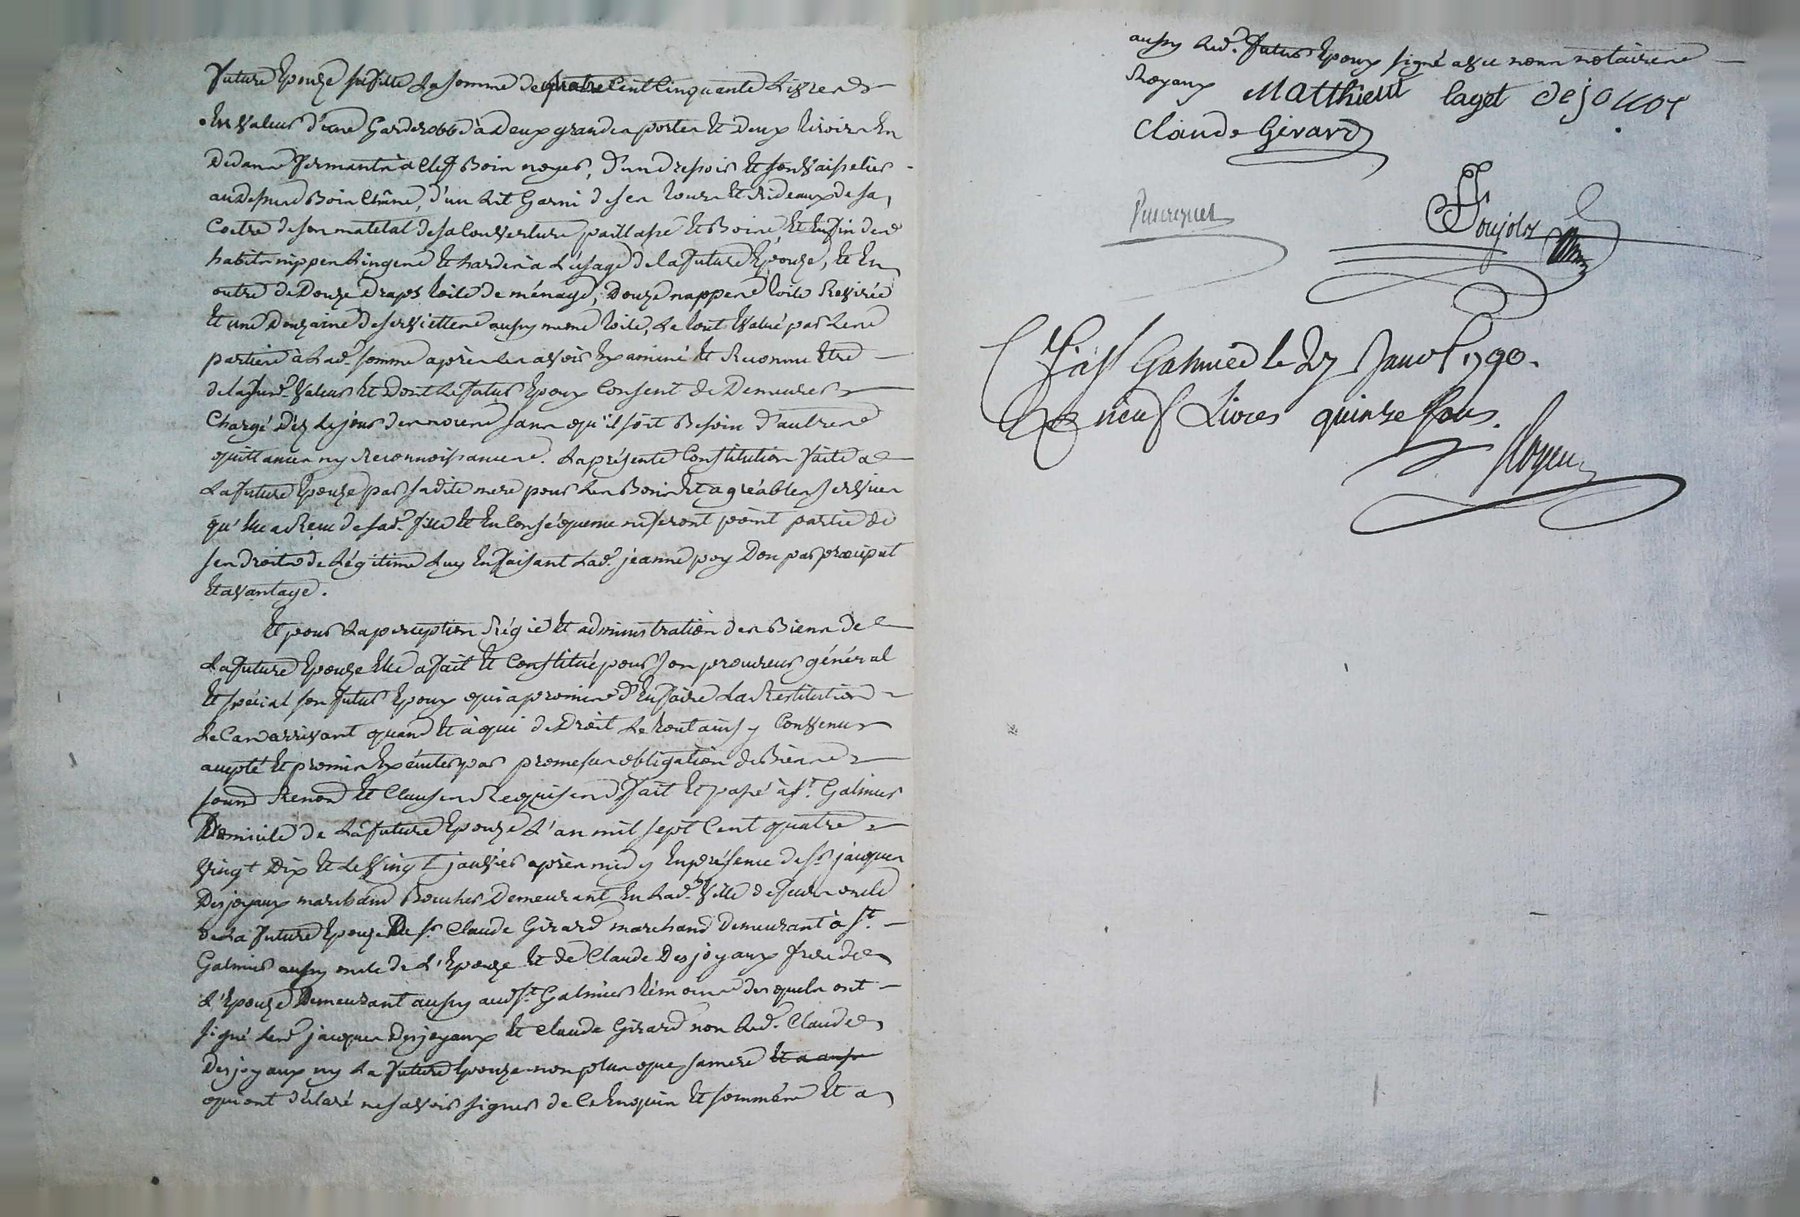 future Epouze sa fille la somme de quatre Cent Cinquante Livres
En Valeur d'une Garderobbe à Deux grandes portes Et Deux tiroirs En
Dedans fermante à Clef Bois noyer, d'un dressoir Et son Vaisselier
audessus Bois Chêne, d'un Lit Garni de ses tours Et Rideaux de sa
Coetre de son matelat de sa Couverture paillasse Et Bois Et Enfin des
habits nippes Linges Et hardes à L'usage de la future Epouze, Et En
outre de Douze Draps toile de ménage, Douze nappes toile
Et une Douzaine de serviettes aussy meme toile, Le tout Evalué par Les
parties à Lad. somme après Les avoir Examiné Et Reconnu Etre
de la susd. Valeur Et Dont Le futur Epoux Consent de Demeurer
Chargé Dès Le jour des noces sans qu'il soit Besoin d'autres
quittances ny Reconnoissances. La présente Constitution faite a
La future Epouze par sadite mere pour Les Bons Et agréables services
qu'Elle a Reçu de sad. fille Et En Conséquence ne feront point partie de
ses droits de Légitime Luy En faisant Lad. jeanne poy Don par préciput
Et avantage.
Et pour La perception Régie Et administration des Biens de
La future Epouze Elle a fait Et Constitué pour son procureur général
Et spécial son futur Epoux qui a promis d'En faire La Restitution
Le Cas arrivant quand Et à qui de Droit Le tout ainsy Convenu
accepté Et promis Exécuter par promesses obligation de Biens
soum Renon Et Clauses Requises fait Et passé à St. Galmier
Domicile de La future Epouze L'an mil sept Cent quatre
Vingt Dix Et Le Vingt janvier après midy En présence de Sr. jacques
Desjoyaux marchand Boucher Demeurant En Lad. Ville de oncle
de La future Epouze De Sr. Claude Girard marchand demeurant à St.
Galmier aussy oncle de L'Epouze Et de Claude Desjoyaux frere de
L'Epouze Demeurant aussy aud. St. Galmier témoins desquels ont
signé Lesd. jacques Desjoyaux Et Claude Girard non Led. Claude
Desjoyaux ny La future Epouze non plus que sa mere Et a aussy
qui ont déclaré ne savoir signer de Ce Enquis Et sommés Et a
aussy Led. futur Epoux signé avec nous notaires
Royaux Matthieu laget dejouos
Claude Girard
Poujols
St Galmier le 27 Janvr 1790.
neuf Livres quinze sous.